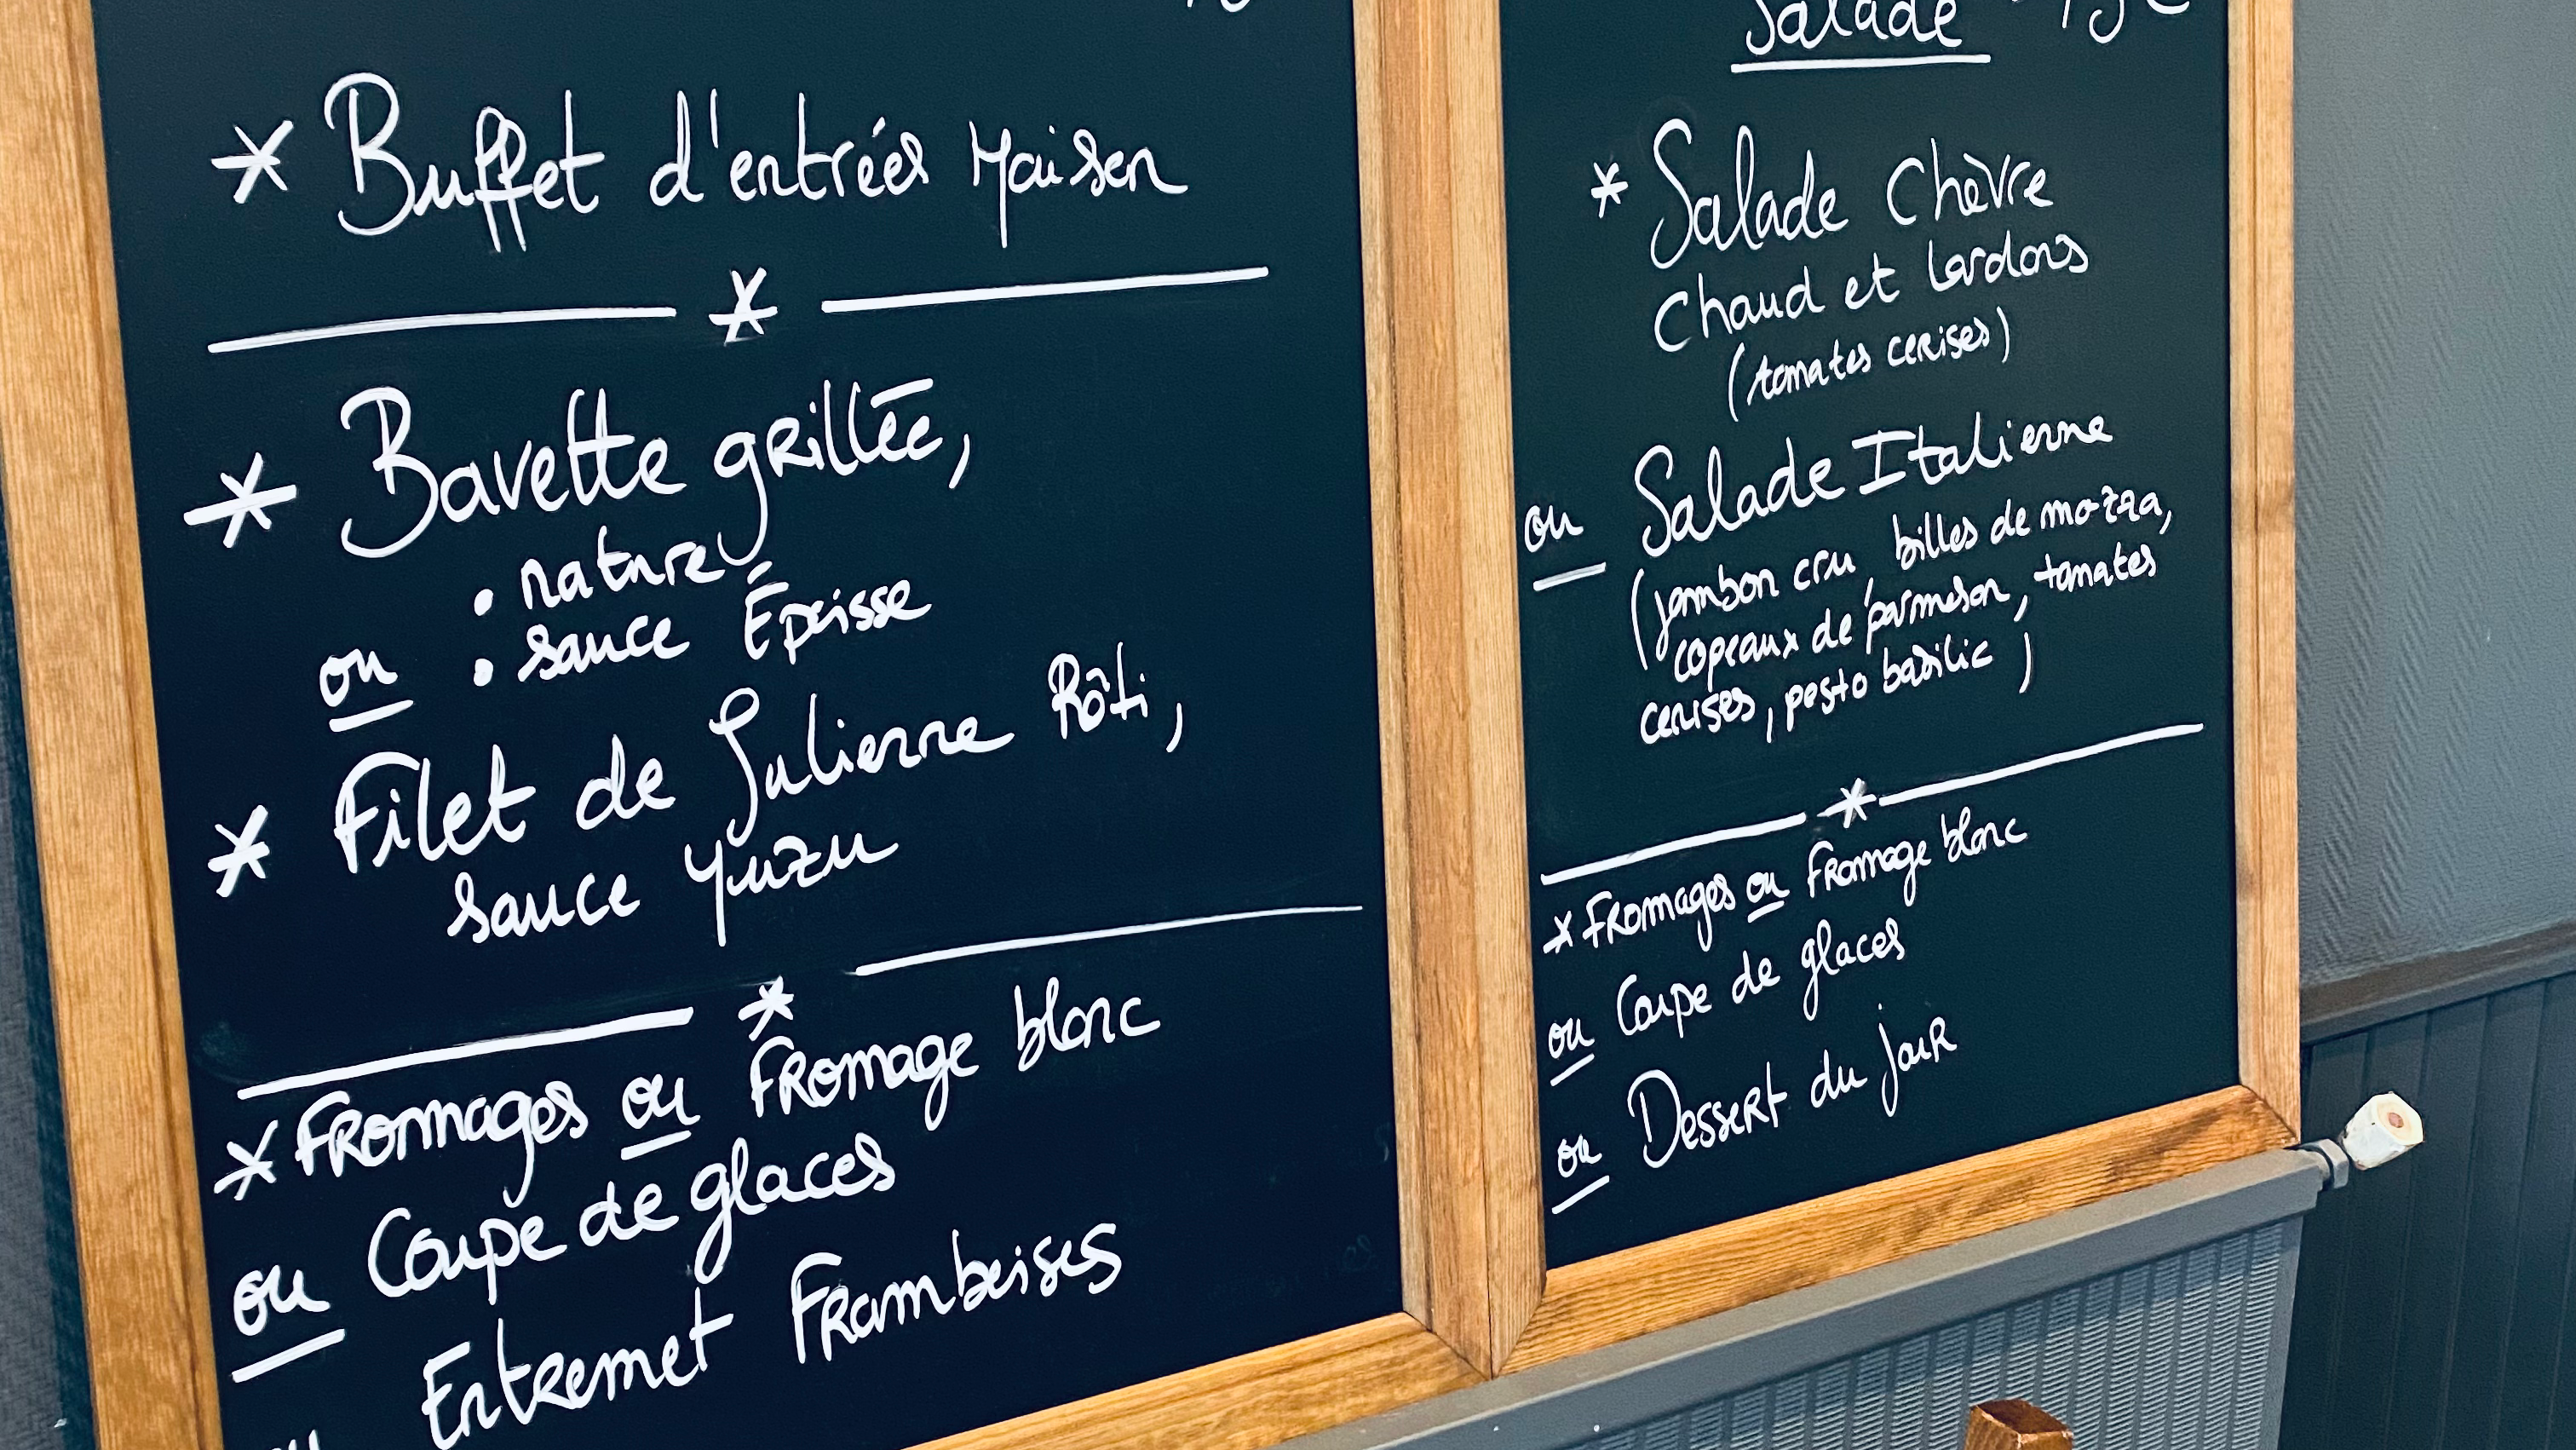 * Buffet d'entrées Maison
*
* Bavette grillée,
• nature
ou • sauce Époisse
* Filet de Julienne Rôti,
sauce Yuzu
*
* Fromages ou Fromage blanc
ou Coupe de glaces
ou Entremet Framboises
Salade
* Salade Chèvre
Chaud et lardons
(tomates cerises)
ou Salade Italienne
(jambon cru, billes de mozza,
copeaux de parmesan, tomates
cerises, pesto basilic)
*
* Fromages ou Fromage blanc
ou Coupe de glaces
ou Dessert du jour